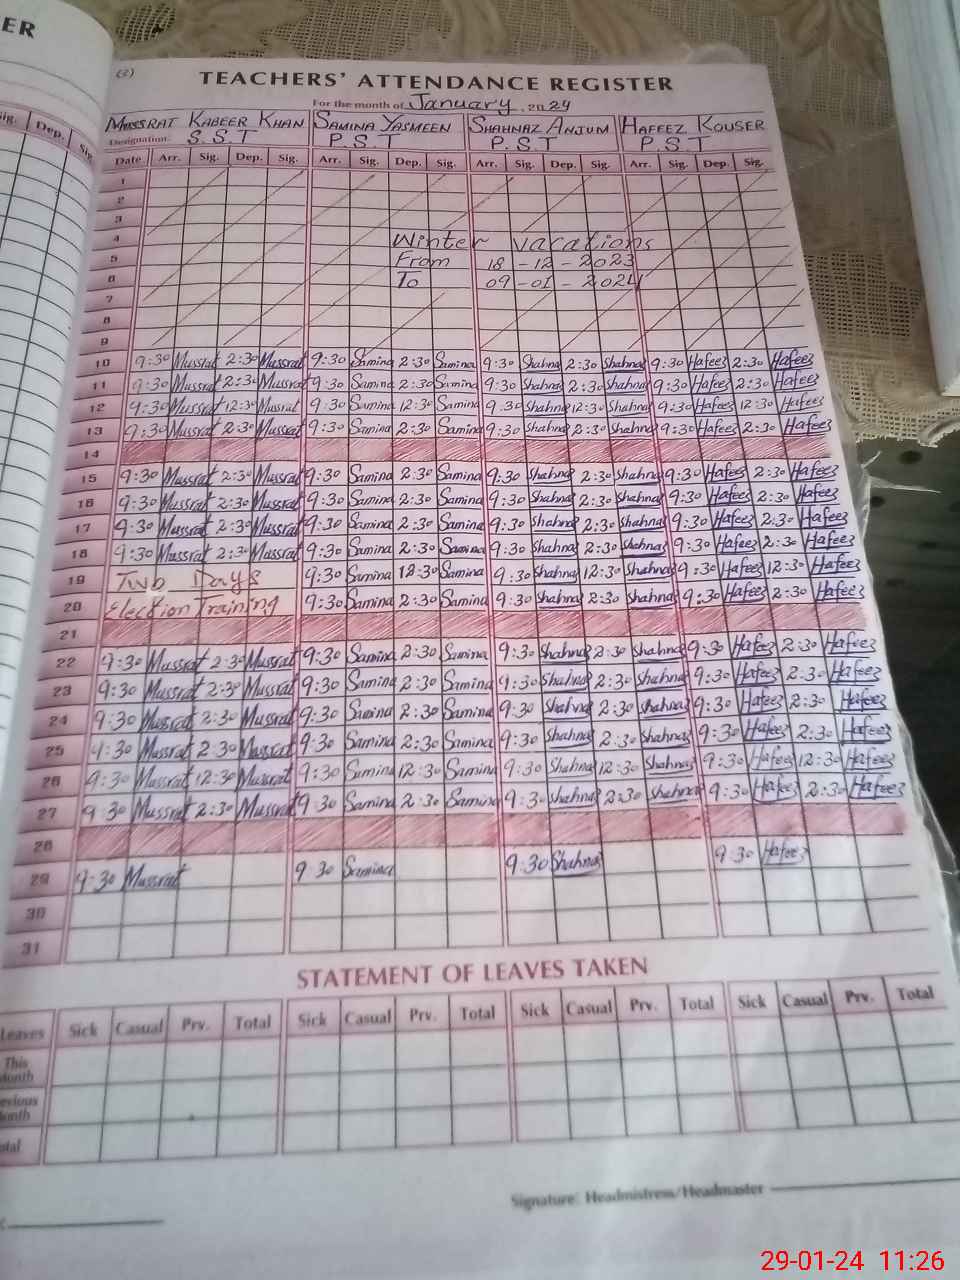 ER
(2)
TEACHERS' ATTENDANCE REGISTER
For the month of January, 2024
MUSSRAT KABEER KHAN SAMINA YASMEEN SHAHNAZ ANJUM HAFEEZ KOUSER
Designation: S.S.T P.S.T P.S.T P.S.T
Sig. Dep. Sig
Date Arr. Sig. Dep. Sig. Arr. Sig. Dep. Sig. Arr. Sig. Dep. Sig. Arr. Sig. Dep. Sig.
1
2
3
4 Winter vacations
5 From 18-12-2023
6 To 09-01-2024
7
8
9
10 9:30 Mussrat 2:30 Mussrat 9:30 Samina 2:30 Samina 9:30 Shahnaz 2:30 Shahnaz 9:30 Hafeez 2:30 Hafeez
11 9:30 Mussrat 2:30 Mussrat 9:30 Samina 2:30 Samina 9:30 Shahnaz 2:30 Shahnaz 9:30 Hafeez 2:30 Hafeez
12 9:30 Mussrat 12:30 Mussrat 9:30 Samina 12:30 Samina 9:30 Shahnaz 12:30 Shahnaz 9:30 Hafeez 12:30 Hafeez
13 9:30 Mussrat 2:30 Mussrat 9:30 Samina 2:30 Samina 9:30 Shahnaz 2:30 Shahnaz 9:30 Hafeez 2:30 Hafeez
14
15 9:30 Mussrat 2:30 Mussrat 9:30 Samina 2:30 Samina 9:30 Shahnaz 2:30 Shahnaz 9:30 Hafeez 2:30 Hafeez
16 9:30 Mussrat 2:30 Mussrat 9:30 Samina 2:30 Samina 9:30 Shahnaz 2:30 Shahnaz 9:30 Hafeez 2:30 Hafeez
17 9:30 Mussrat 2:30 Mussrat 9:30 Samina 2:30 Samina 9:30 Shahnaz 2:30 Shahnaz 9:30 Hafeez 2:30 Hafeez
18 9:30 Mussrat 2:30 Mussrat 9:30 Samina 2:30 Samina 9:30 Shahnaz 2:30 Shahnaz 9:30 Hafeez 2:30 Hafeez
19 Two Days 9:30 Samina 12:30 Samina 9:30 Shahnaz 12:30 Shahnaz 9:30 Hafeez 12:30 Hafeez
20 Election Training 9:30 Samina 2:30 Samina 9:30 Shahnaz 2:30 Shahnaz 9:30 Hafeez 2:30 Hafeez
21
22 9:30 Mussrat 2:30 Mussrat 9:30 Samina 2:30 Samina 9:30 Shahnaz 2:30 Shahnaz 9:30 Hafeez 2:30 Hafeez
23 9:30 Mussrat 2:30 Mussrat 9:30 Samina 2:30 Samina 9:30 Shahnaz 2:30 Shahnaz 9:30 Hafeez 2:30 Hafeez
24 9:30 Mussrat 2:30 Mussrat 9:30 Samina 2:30 Samina 9:30 Shahnaz 2:30 Shahnaz 9:30 Hafeez 2:30 Hafeez
25 9:30 Mussrat 2:30 Mussrat 9:30 Samina 2:30 Samina 9:30 Shahnaz 2:30 Shahnaz 9:30 Hafeez 2:30 Hafeez
26 9:30 Mussrat 12:30 Mussrat 9:30 Samina 12:30 Samina 9:30 Shahnaz 12:30 Shahnaz 9:30 Hafeez 12:30 Hafeez
27 9:30 Mussrat 2:30 Mussrat 9:30 Samina 2:30 Samina 9:30 Shahnaz 2:30 Shahnaz 9:30 Hafeez 2:30 Hafeez
28
29 9:30 Mussrat 9:30 Samina 9:30 Shahnaz 9:30 Hafeez
30
31
STATEMENT OF LEAVES TAKEN
Leaves Sick Casual Prv. Total Sick Casual Prv. Total Sick Casual Prv. Total Sick Casual Prv. Total
This
Month
evious
onth
otal
Signature: Headmistress/Headmaster
29-01-24 11:26